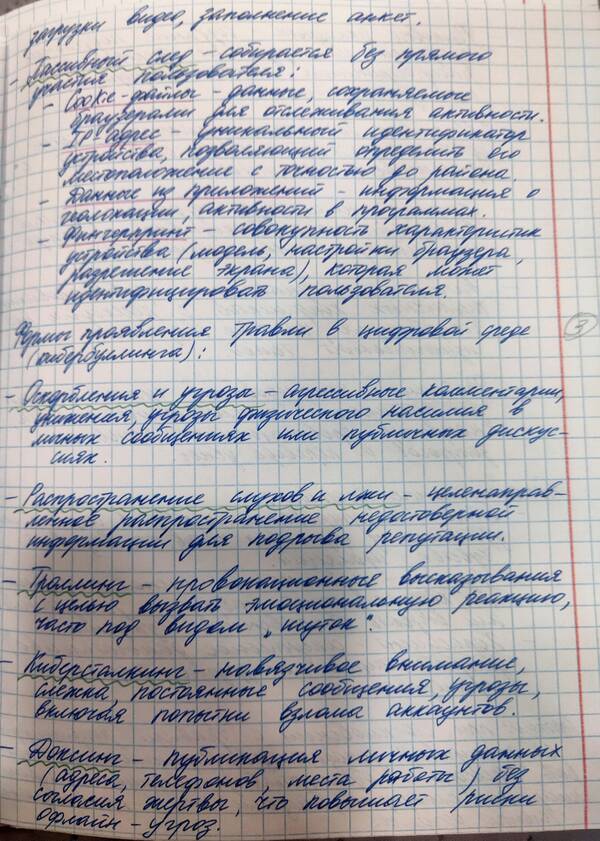 загрузки видео, заполнение анкет.
- Пассивный след - собирается без прямого
участия пользователя:
- Cookie-файлы - данные, сохраняемые
браузерами для отслеживания активности.
- IP адрес - уникальный идентификатор
устройства, позволяющий определить его
местоположение с точностью до района.
- Данные из приложений - информация о
геолокации, активности в программах.
- Фингерпринт - совокупность характеристик
устройства (модель, настройки браузера,
разрешение экрана), которая может
идентифицировать пользователя.
Формы проявления травли в цифровой среде
(кибербуллинга):
3
- Оскорбления и угрозы - агрессивные комментарии,
унижения, угрозы физического насилия в
личных сообщениях или публичных дискус-
сиях.
- Распространение слухов и лжи - целенаправ-
ленное распространение недостоверной
информации для подрыва репутации.
- Троллинг - провокационные высказывания
с целью вызвать эмоциональную реакцию,
часто под видом „шуток".
- Киберсталкинг - навязчивое внимание,
слежка, постоянные сообщения, угрозы,
включая попытки взлома аккаунтов.
- Доксинг - публикация личных данных
(адреса, телефонов, места работы) без
согласия жертвы, что повышает риски
офлайн - угроз.